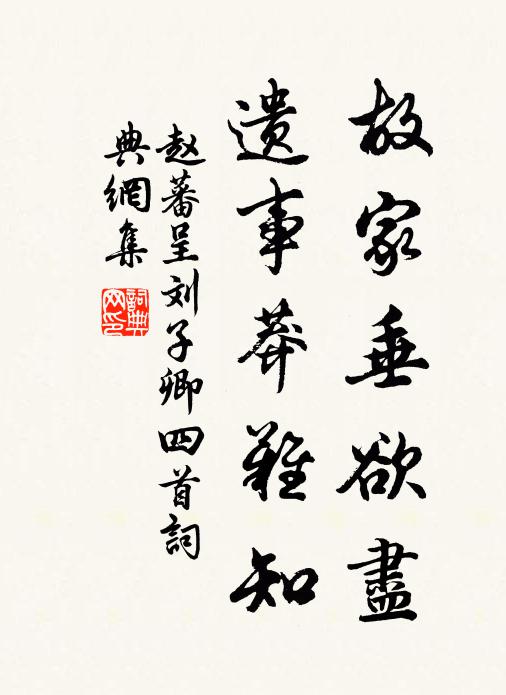 故家垂欲盡
遺事莽難知
赵蕃呈刘子卿四首詞
典網集
詞典网印